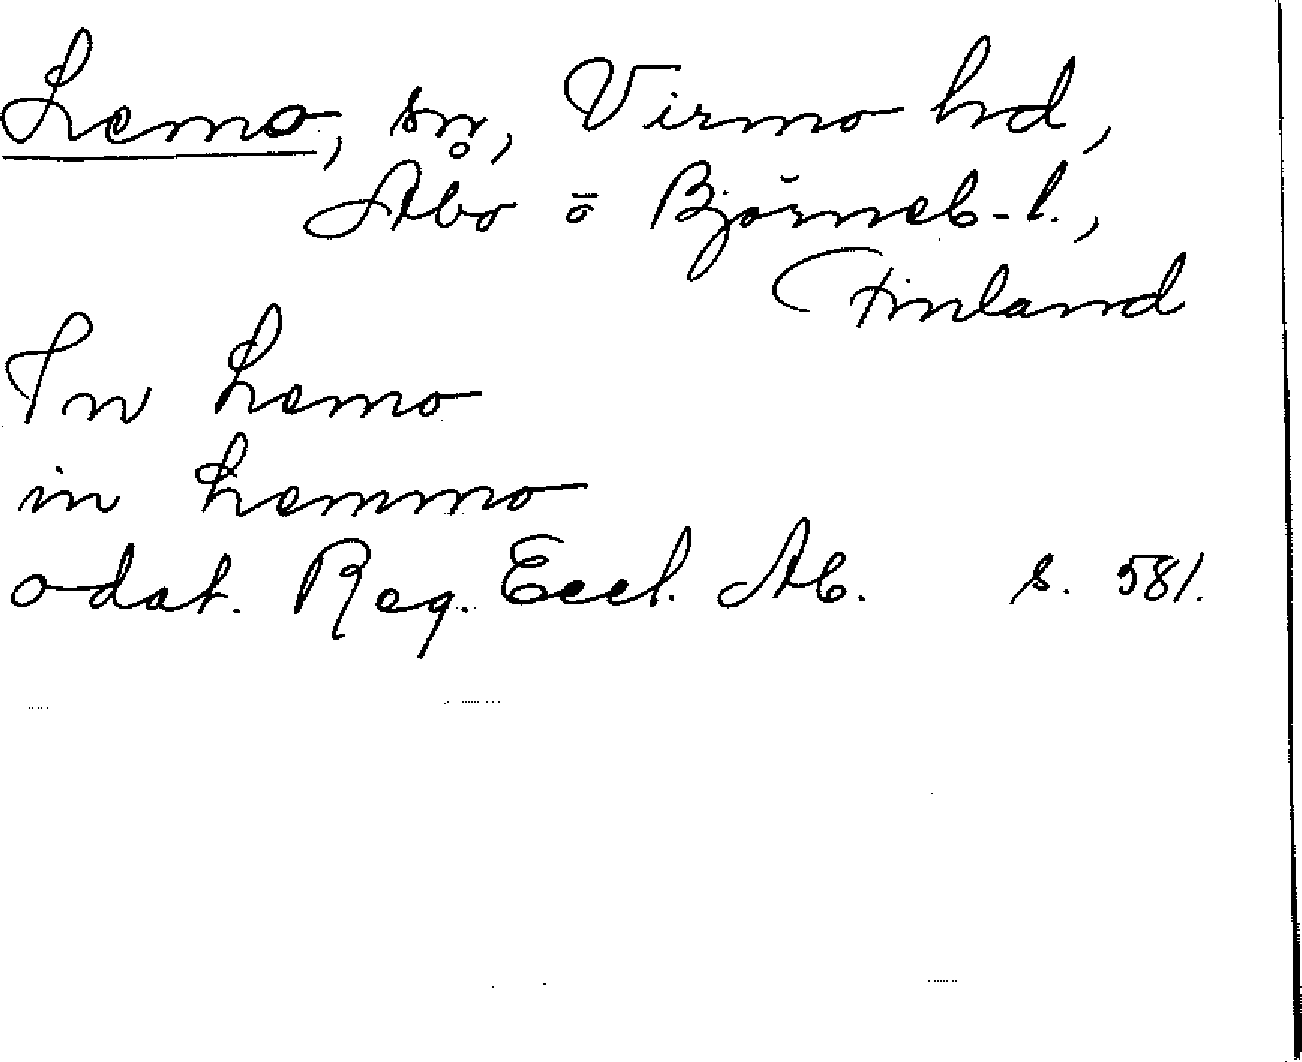 Lemo, sn, Virmo hd,
Åbo o Björneb-l.,
Finland
In Lemo
in Lemmo
odat. Reg. Eccl. Ab. s. 581.